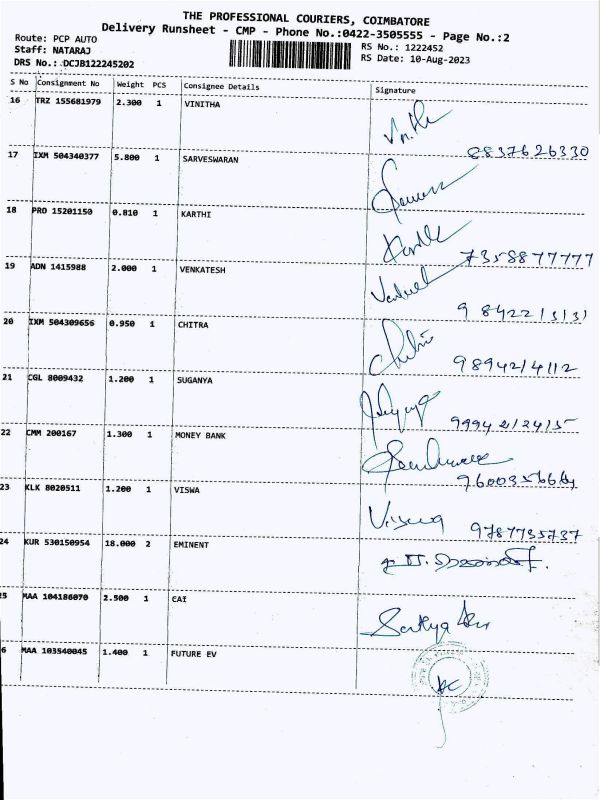 THE PROFESSIONAL COURIERS, COIMBATORE
Delivery Runsheet - CMP - Phone No.:0422-3505555 - Page No.:2
Route: PCP AUTO
Staff: NATARAJ
DRS No.: DCJB122245202
RS No.: 1222452
RS Date: 10-Aug-2023
S No Consignment No Weight PCS Consignee Details Signature
16 TRZ 155681979 2.300 1 VINITHA
8837626330
17 IXM 504340377 5.800 1 SARVESWARAN
18 PRO 15201150 0.810 1 KARTHI
7358877777
19 ADN 1415988 2.000 1 VENKATESH
9842213131
20 IXM 504309656 0.950 1 CHITRA
9894214112
21 CGL 8009432 1.200 1 SUGANYA
22 CMM 200167 1.300 1 MONEY BANK
23 KLK 8020511 1.200 1 VISWA
Viswa 9787735737
24 KUR 530150954 18.000 2 EMINENT
5 MAA 104186070 2.500 1 CAI
Sathya
6 MAA 103540045 1.400 1 FUTURE EV